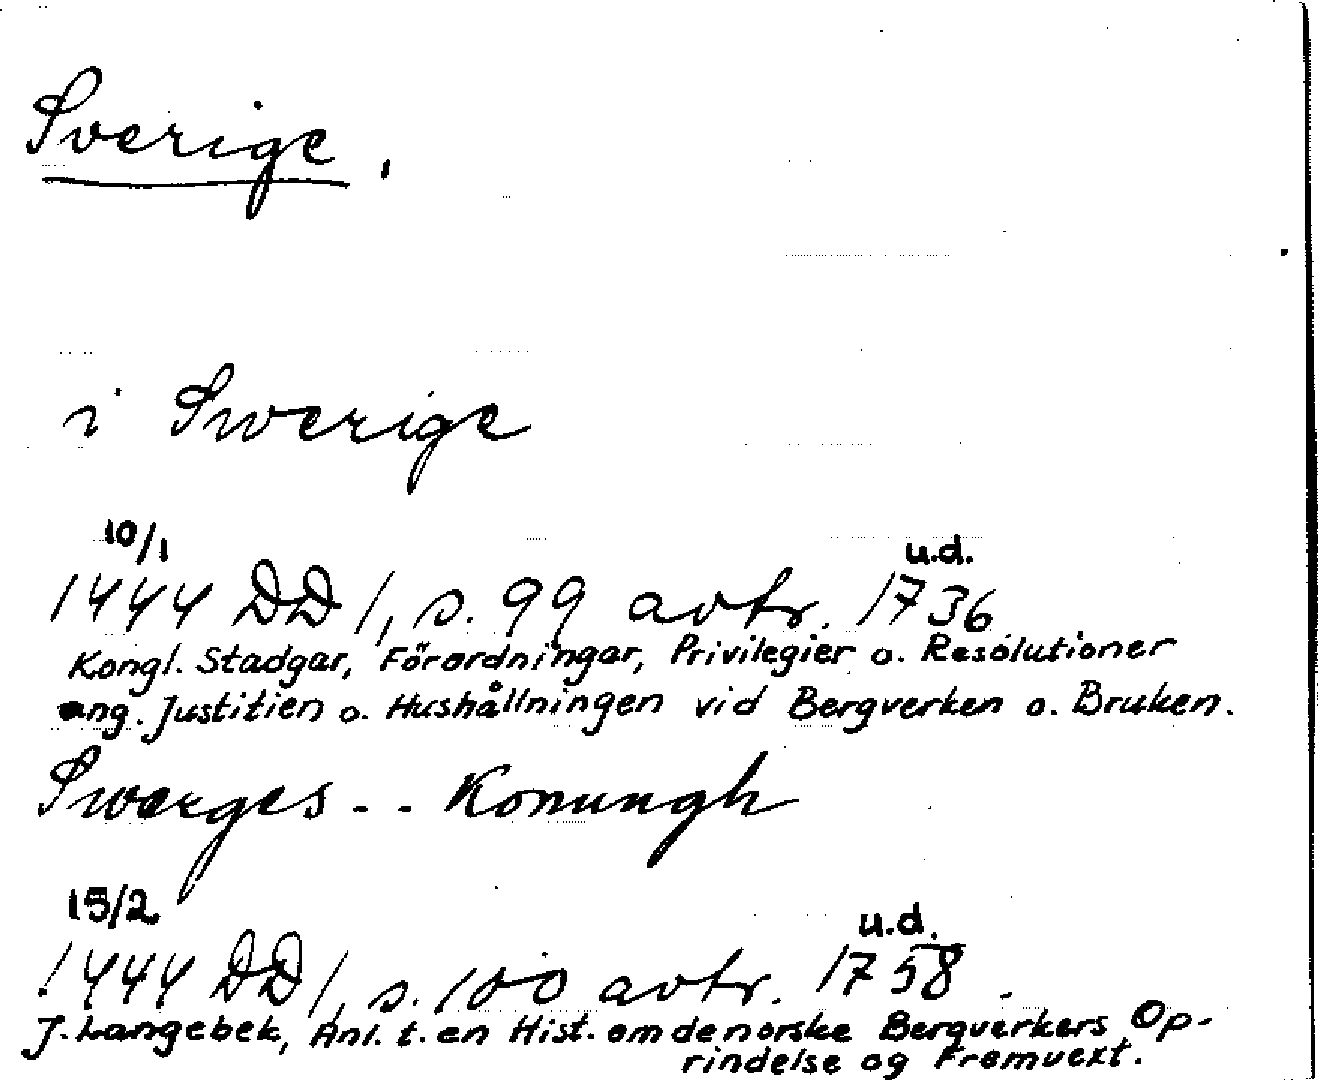 Sverige,
i Swerige
10/1
u.d.
1444 DD 1, s. 99 avtr. 1736
Kongl. Stadgar, Förordningar, Privilegier o. Resolutioner
ang. Justitien o. Hushållningen vid Bergverken o. Bruken.
Swerges -- Konungh
15/2
u.d.
1444 DD 1, s. 100 avtr. 1758.
J. Langebek, Anl. t. en Hist. om de norske Bergverkers Op-
rindelse og Fremvext.